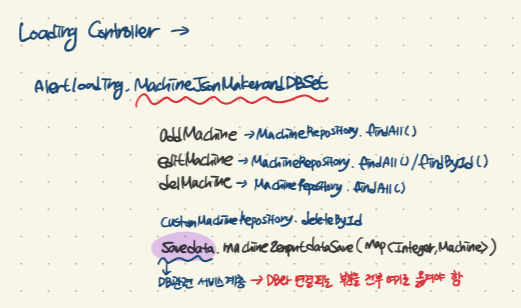 Loading Controller →
Alertloading.MachineJsonMakerandDBSet
addMachine → MachineRepository.findAll()
editMachine → MachineRepository.findAll()/findById()
delMachine → MachineRepository.findAll()
CustomMachineRepository.deleteById
Savedata.machine2inputdataSave(Map<Integer,Machine>)
DB관련 서비스계층 → DB와 연결되는 부분을 전부 여기로 옮겨야 함